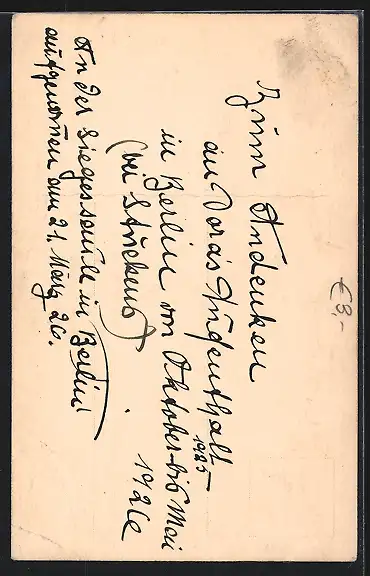 Zum Andenken
an Doras Aufenthalt
in Berlin von Oktober 1925 bis Mai
(bei Stubens) 1926
An der Siegessäule in Berlin
aufgenommen am 21. März 26.
€ 8,-